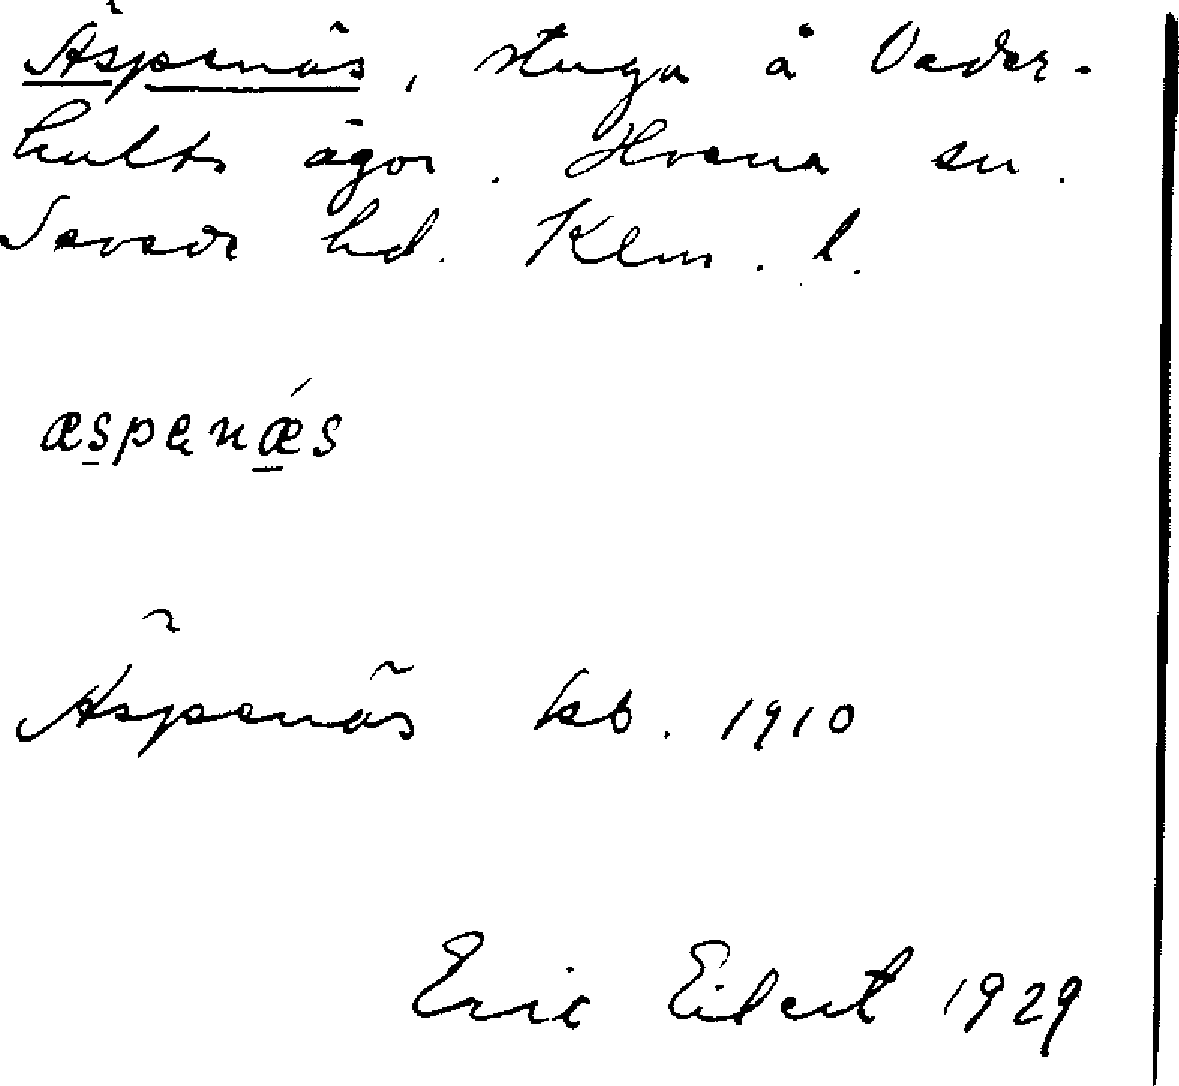 Äspenäs, stuga å Vader-
hults ägor. Hvena sn.
Sevede hd. Klm. l.
æspenæ´s
Äspenäs kb. 1910
Eric Eilert 1929